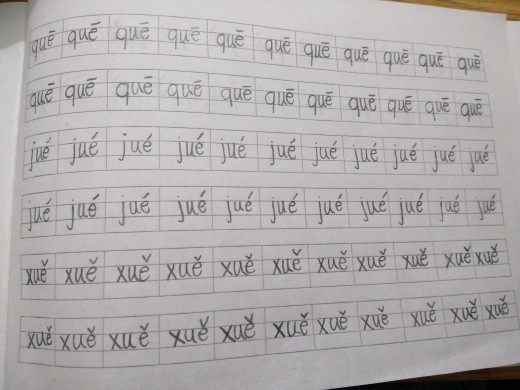 quē quē quē quē quē quē quē quē quē quē quē
quē quē quē quē quē quē quē quē quē quē quē
jué jué jué jué jué jué jué jué jué jué jué
jué jué jué jué jué jué jué jué jué jué jué
xuě xuě xuě xuě xuě xuě xuě xuě xuě xuě xuě
xuě xuě xuě xuě xuě xuě xuě xuě xuě xuě xuě